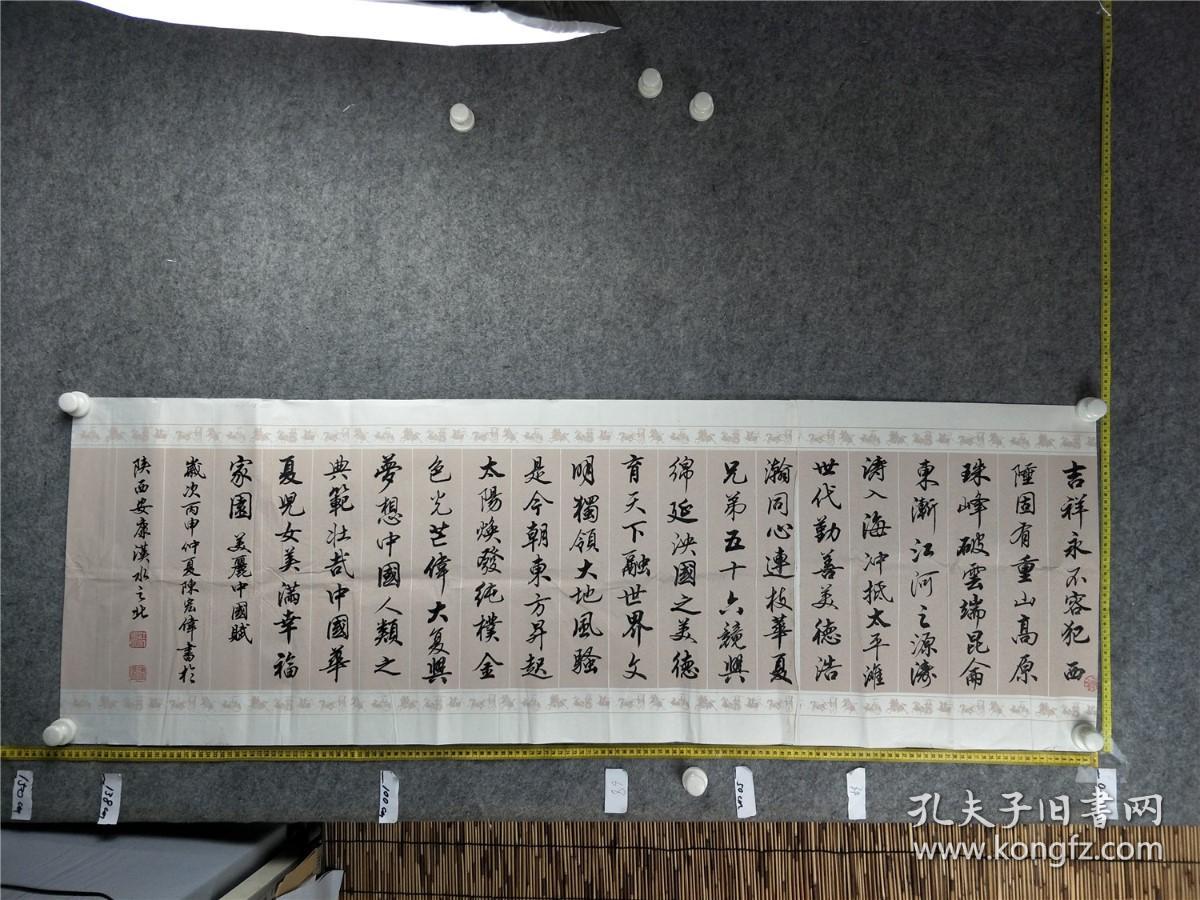 吉祥永不容犯西
陲固有重山高原
珠峰破雲端昆侖
東漸江河之源濤
濤入海沖抵太平灘
世代勤善美德浩
瀚同心連枝華夏
兄弟五十六競興
綿延泱國之美德
育天下融世界文
明獨領大地風騷
是今朝東方昇起
太陽煥發純樸金
色光芒偉大复興
夢想中國人類之
典範壯哉中國華
夏兒女美满幸福
家園 美麗中國賦
歲次丙申仲夏陳宏偉書於
陕西安康漢水之北
150cm
138cm
100cm
50cm
孔夫子旧書网
www.kongfz.com